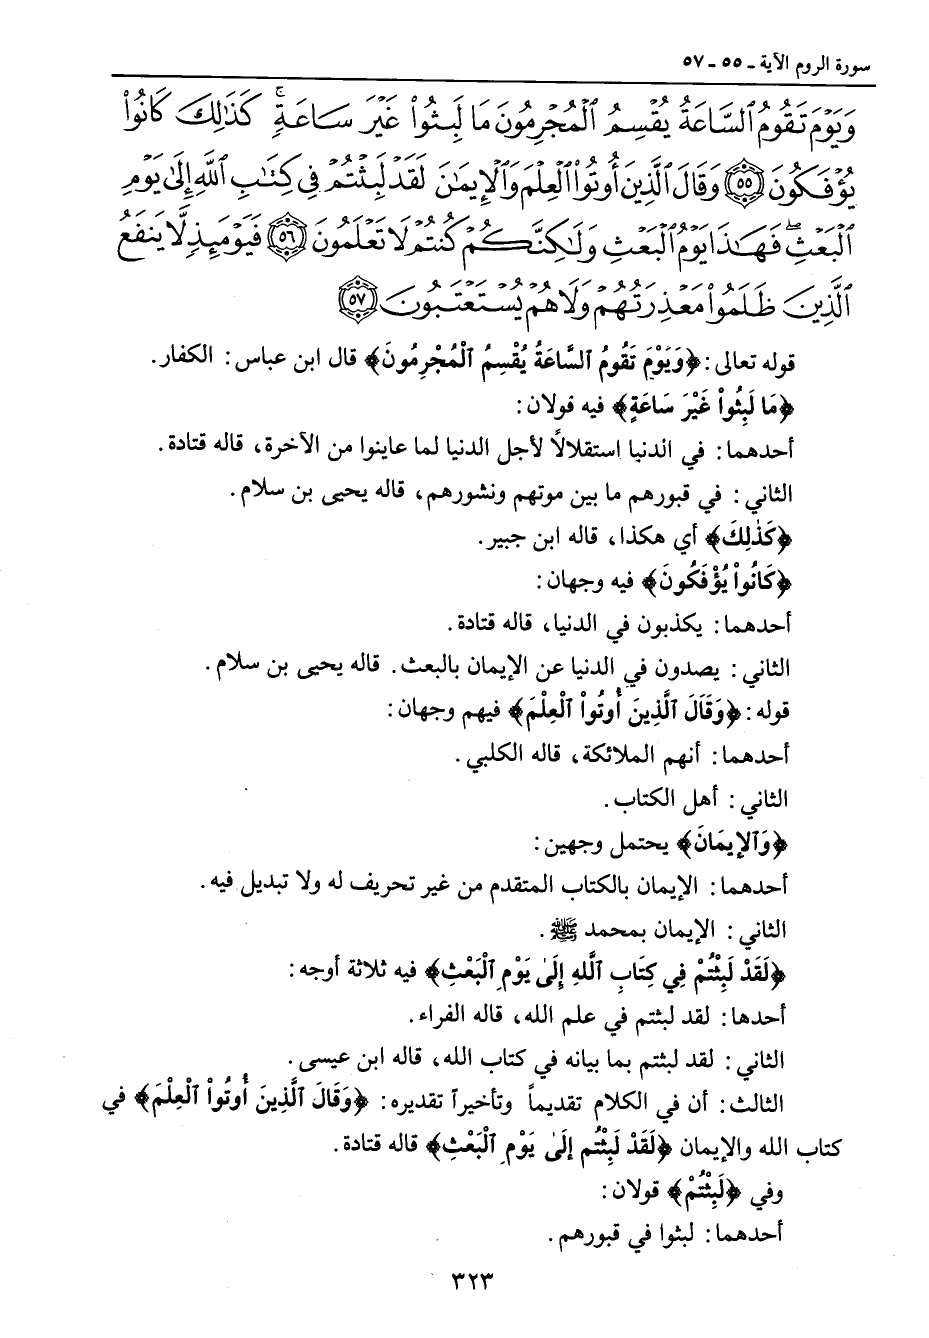 سورة الروم الآية ـ ٥٥ ـ ٥٧
وَيَوْمَ تَقُومُ ٱلسَّاعَةُ يُقْسِمُ ٱلْمُجْرِمُونَ مَا لَبِثُوا۟ غَيْرَ سَاعَةٍ ۚ كَذَٰلِكَ كَانُوا۟
يُؤْفَكُونَ ٥٥ وَقَالَ ٱلَّذِينَ أُوتُوا۟ ٱلْعِلْمَ وَٱلْإِيمَٰنَ لَقَدْ لَبِثْتُمْ فِى كِتَٰبِ ٱللَّهِ إِلَىٰ يَوْمِ
ٱلْبَعْثِ ۖ فَهَٰذَا يَوْمُ ٱلْبَعْثِ وَلَٰكِنَّكُمْ كُنتُمْ لَا تَعْلَمُونَ ٥٦ فَيَوْمَئِذٍ لَّا يَنفَعُ
ٱلَّذِينَ ظَلَمُوا۟ مَعْذِرَتُهُمْ وَلَا هُمْ يُسْتَعْتَبُونَ ٥٧
قوله تعالى: ﴿وَيَوْمَ تَقُومُ ٱلسَّاعَةُ يُقْسِمُ ٱلْمُجْرِمُونَ﴾ قال ابن عباس: الكفار.
﴿مَا لَبِثُوا۟ غَيْرَ سَاعَةٍ﴾ فيه قولان:
أحدهما: في الدنيا استقلالاً لأجل الدنيا لما عاينوا من الآخرة، قاله قتادة.
الثاني: في قبورهم ما بين موتهم ونشورهم، قاله يحيى بن سلام.
﴿كَذَٰلِكَ﴾ أي هكذا، قاله ابن جبير.
﴿كَانُوا۟ يُؤْفَكُونَ﴾ فيه وجهان:
أحدهما: يكذبون في الدنيا، قاله قتادة.
الثاني: يصدون في الدنيا عن الإيمان بالبعث. قاله يحيى بن سلام.
قوله: ﴿وَقَالَ ٱلَّذِينَ أُوتُوا۟ ٱلْعِلْمَ﴾ فيهم وجهان:
أحدهما: أنهم الملائكة، قاله الكلبي.
الثاني: أهل الكتاب.
﴿وَٱلإِيمَانَ﴾ يحتمل وجهين:
أحدهما: الإيمان بالكتاب المتقدم من غير تحريف له ولا تبديل فيه.
الثاني: الإيمان بمحمد ﷺ.
﴿لَقَدْ لَبِثْتُمْ فِي كِتَابِ ٱللَّهِ إِلَىٰ يَوْمِ ٱلْبَعْثِ﴾ فيه ثلاثة أوجه:
أحدها: لقد لبثتم في علم الله، قاله الفراء.
الثاني: لقد لبثتم بما بيانه في كتاب الله، قاله ابن عيسى.
الثالث: أن في الكلام تقديماً وتأخيراً تقديره: ﴿وَقَالَ ٱلَّذِينَ أُوتُوا۟ ٱلْعِلْمَ﴾ في
كتاب الله والإيمان ﴿لَقَدْ لَبِثْتُم إِلَىٰ يَوْمِ ٱلْبَعْثِ﴾ قاله قتادة.
وفي ﴿لَبِثْتُمْ﴾ قولان:
أحدهما: لبثوا في قبورهم.
٣٢٣